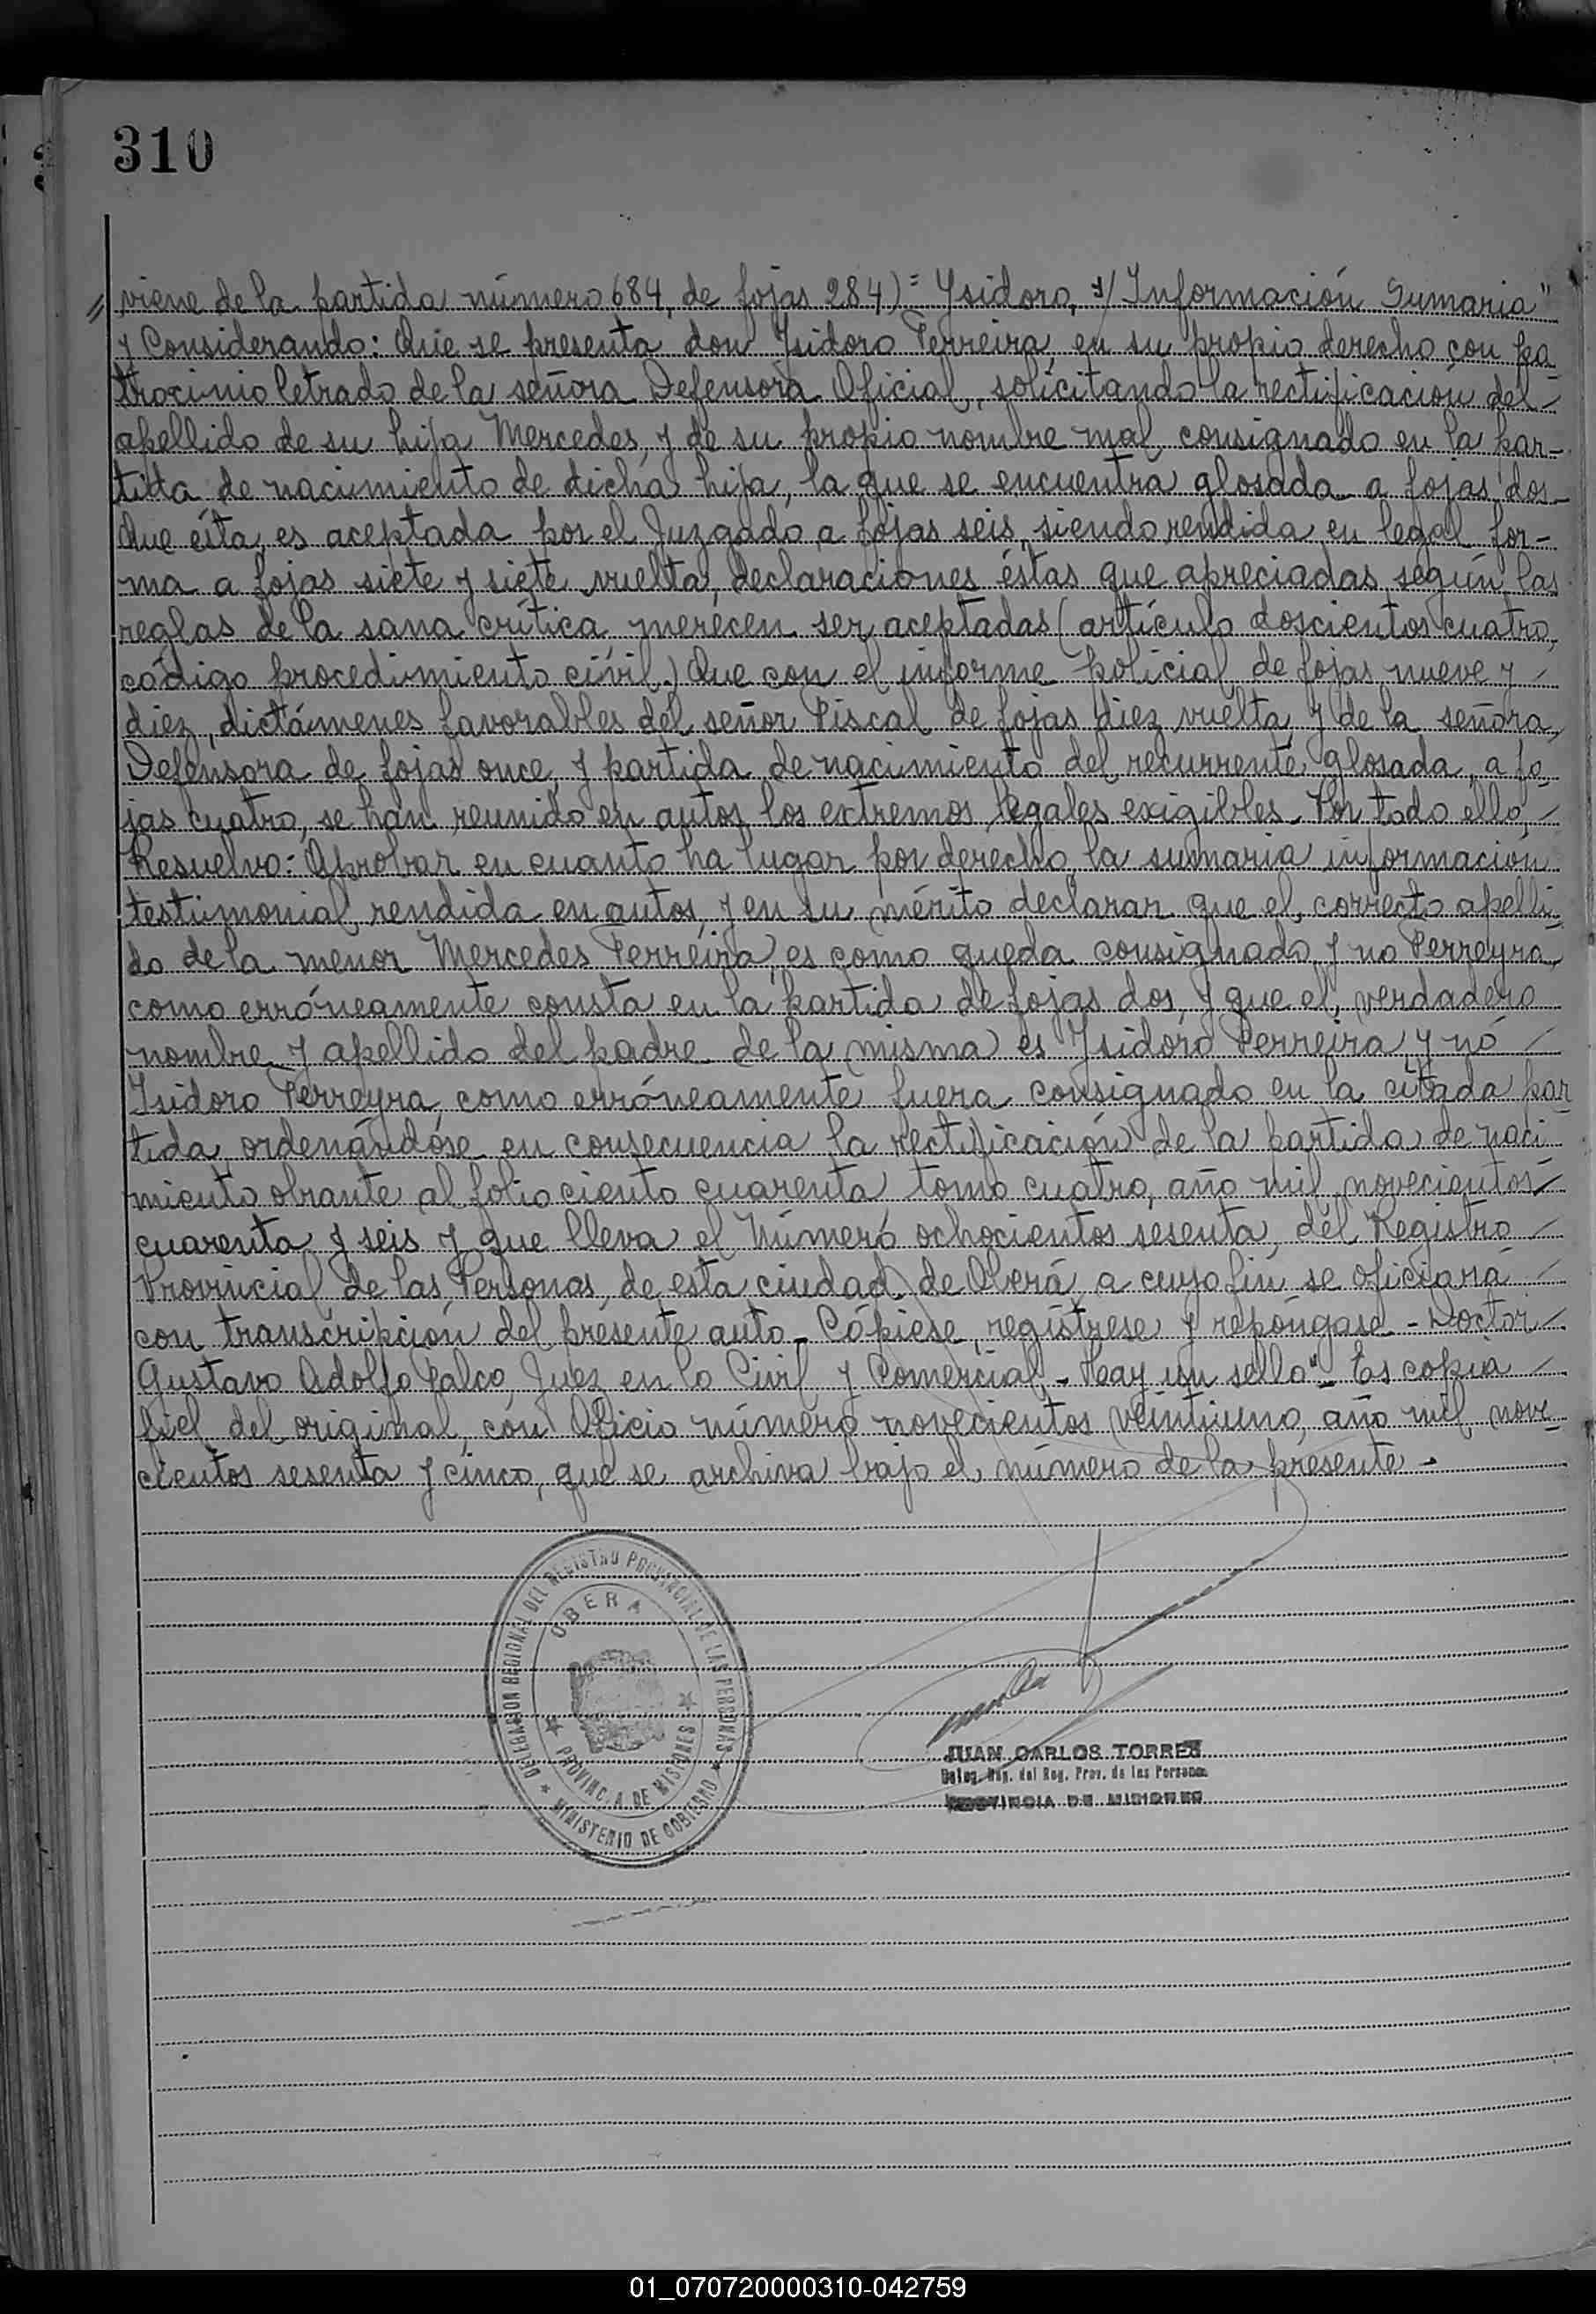 310
// viene de la partida número 684, de fojas 284) = Ysidoro, s/ Información Sumaria"
y Considerando: Que se presenta don Ysidoro Ferreira, en su propio derecho con pa-
trocinio letrado de la señora Defensora Oficial, solicitando la rectificación del -
apellido de su hija Mercedes, y de su propio nombre mal consignado en la par-
tida de nacimiento de dicha hija, la que se encuentra glosada a fojas dos -
Que ésta, es aceptada por el Juzgado a fojas seis, siendo rendida en legal for-
ma a fojas siete y siete vuelta, declaraciones éstas que apreciadas según las
reglas de la sana crítica merecen ser aceptadas (artículo doscientos cuatro,
código procedimiento civil.) Que con el informe policial de fojas nueve y -
diez, dictámenes favorables del señor Fiscal de fojas diez vuelta y de la señora
Defensora de fojas once, y partida de nacimiento del recurrente glosada, a fo-
jas cuatro, se han reunido en autos los extremos legales exigibles. Por todo ello, -
Resuelvo: Aprobar en cuanto ha lugar por derecho, la sumaria informacion
testimonial rendida en autos, y en su mérito declarar que el correcto apelli-
do de la menor Mercedes Ferreira, es como queda consignado y no Ferreyra,
como erróneamente consta en la partida de fojas dos, y que el verdadero
nombre y apellido del padre de la misma es Ysidoro Ferreira, y nó -
Isidoro Ferreyra, como erróneamente fuera consignado en la citada par
tida, ordenándose en consecuencia la rectificación de la partida de naci-
miento obrante al folio ciento cuarenta tomo cuatro, año mil novecientos -
cuarenta y seis y que lleva el Número ochocientos sesenta, del Registro -
Provincial de las Personas, de esta ciudad de Oberá, a cuyo fin se oficiará -
con transcripción del presente auto - Cópiese, regístrese y repóngase - Doctor -
Gustavo Adolfo Falco, Juez en lo Civil y Comercial, - Hay un sello" - Es copia -
fiel del original, con Oficio número novecientos veintiuno, año mil nove-
cientos sesenta y cinco, que se archiva bajo el número de la presente -
DELEGACION REGIONAL DEL REGISTRO PROVINCIAL DE LAS PERSONAS
OBERA
PROVINCIA DE MISIONES
MINISTERIO DE GOBIERNO
JUAN CARLOS TORRES
Deleg. Reg. del Reg. Prov. de las Personas
PROVINCIA DE MISIONES
01_070720000310-042759